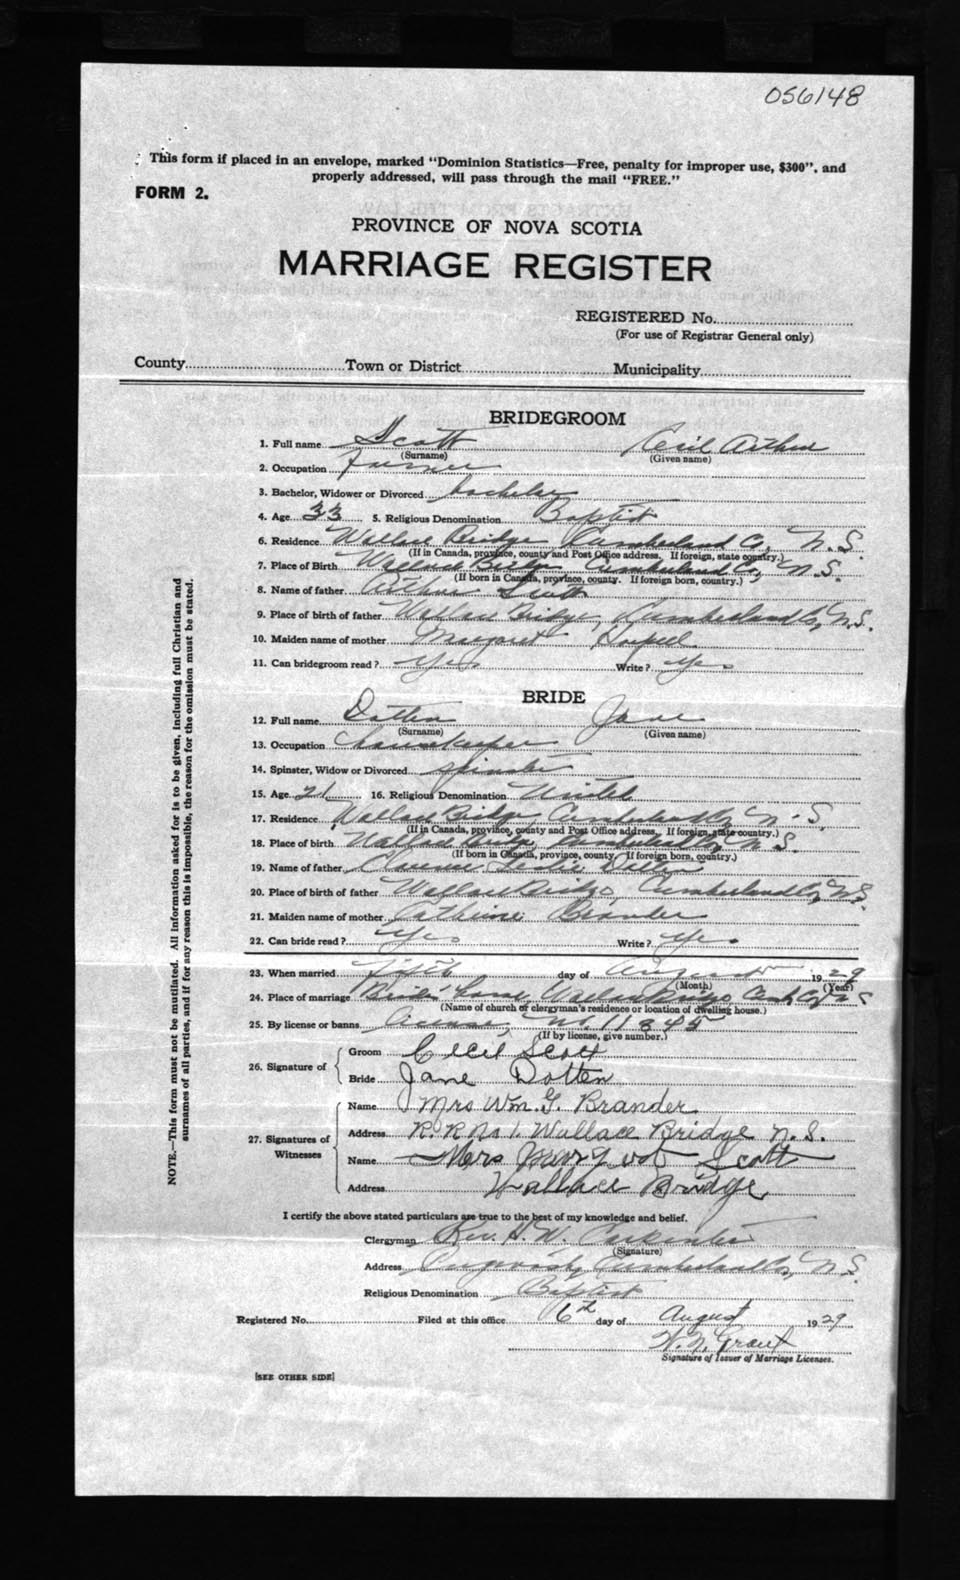 056148
This form if placed in an envelope, marked "Dominion Statistics—Free, penalty for improper use, $300", and
properly addressed, will pass through the mail "FREE."
FORM 2.
PROVINCE OF NOVA SCOTIA
MARRIAGE REGISTER
REGISTERED No.
(For use of Registrar General only)
County Town or District Municipality
BRIDEGROOM
1. Full name Scott Cecil Arthur
(Surname) (Given name)
2. Occupation Farmer
3. Bachelor, Widower or Divorced bachelor
4. Age 33 5. Religious Denomination Baptist
6. Residence Wallace Bridge Cumberland Co., N.S.
(If in Canada, province, county and Post Office address. If foreign, state country.)
7. Place of Birth Wallace Bridge Cumberland Co., N.S.
(If born in Canada, province, county. If foreign born, country.)
8. Name of father Arthur Scott
9. Place of birth of father Wallace Bridge, Cumberland Co., N.S.
10. Maiden name of mother Margaret
11. Can bridegroom read? Yes Write? Yes
BRIDE
12. Full name Dotten Jane
(Surname) (Given name)
13. Occupation housekeeper
14. Spinster, Widow or Divorced spinster
15. Age 21 16. Religious Denomination United
17. Residence Wallace Bridge, Cumberland Co., N.S.
(If in Canada, province, county and Post Office address. If foreign, state country.)
18. Place of birth Wallace Bridge, Cumberland Co., N.S.
(If born in Canada, province, county. If foreign born, country.)
19. Name of father Clarence Leslie Dotten
20. Place of birth of father Wallace Bridge, Cumberland Co., N.S.
21. Maiden name of mother Catherine Brander
22. Can bride read? Yes Write? Yes
23. When married Fifth day of August 1929
(Month) (Year)
24. Place of marriage Bride's home, Wallace Bridge, Cumb. Co., N.S.
(Name of church or clergyman's residence or location of dwelling house.)
25. By license or banns license, No. 11845
(If by license, give number.)
26. Signature of
Groom Cecil Scott
Bride Jane Dotten
27. Signatures of Witnesses
Name Mrs Wm. G. Brander
Address R.R No 1. Wallace Bridge N.S.
Name Mrs Scott
Address Wallace Bridge
I certify the above stated particulars are true to the best of my knowledge and belief.
Clergyman Rev. H. W. Carpenter
(Signature)
Address Pugwash, Cumberland Co., N.S.
Religious Denomination Baptist
Registered No. Filed at this office 6th day of August 1929
W. N. Grant
Signature of Issuer of Marriage Licenses.
[SEE OTHER SIDE]
NOTE.—This form must not be mutilated. All information asked for is to be given, including full Christian and
surnames of all parties, and if for any reason this is impossible, the reason for the omission must be stated.